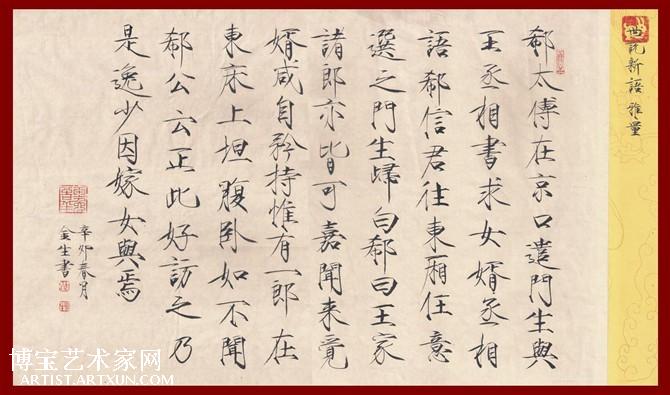 世說新語 雅量
郗太傅在京口遣門生與
王丞相書求女婿丞相
語郗信君往東廂任意
選之門生歸白郗曰王家
諸郎亦皆可嘉聞來覓
婿咸自矜持惟有一郎在
東床上坦腹臥如不聞
郗公云正此好訪之乃
是逸少因嫁女與焉
辛卯春月
金生書
博宝艺术家网
ARTIST.ARTXUN.COM